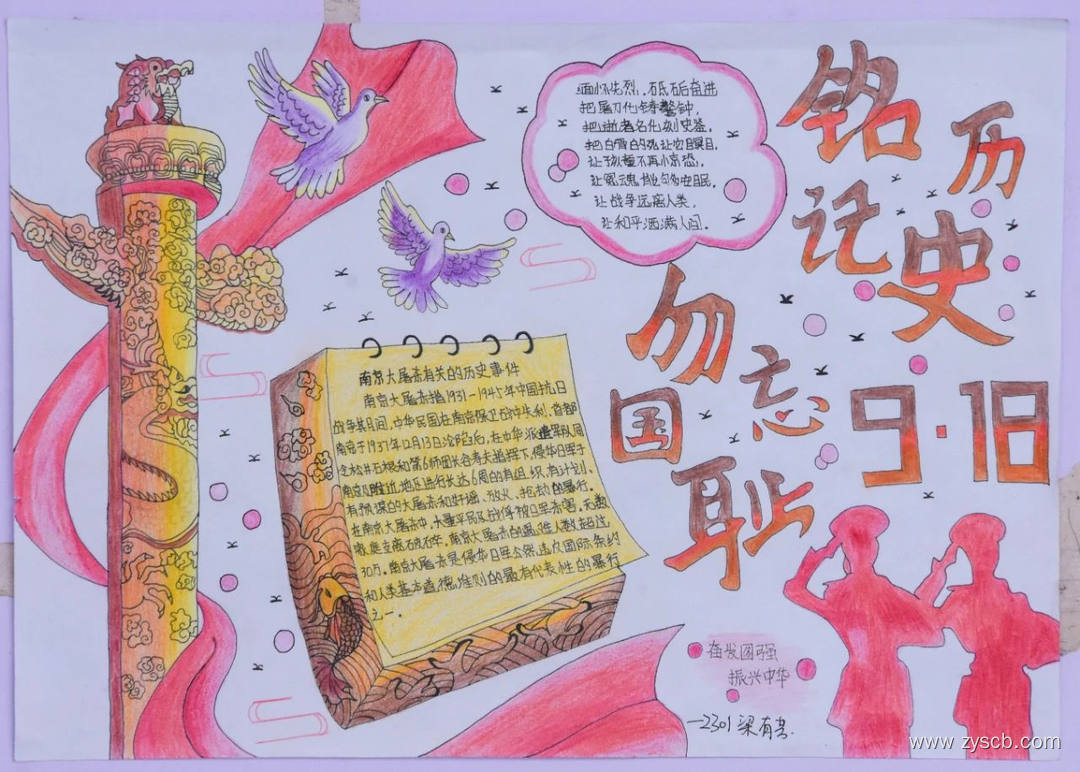 铭记
历史
勿忘
国耻
9·18
缅怀先烈,砥砺奋进
把屠刀化铸警钟,
把逝者名化刻史鉴,
让战争远离人类,
让和平洒满人间。
南京大屠杀有关的历史事件
南京大屠杀指1931-1945年中国抗日
战争期间,中华民国在南京保卫战中失利、首都
南京于1937年12月13日沦陷后,在中华派遣军队
松井石根和第6师团长谷寿夫指挥下,侵华日军于
南京及附近地区进行长达6周的有组织、有计划、
有预谋的大屠杀和奸淫、放火、抢劫的暴行。
在南京大屠杀中,大量平民及战俘被日军杀害,无数
南京大屠杀的遇难人数超过
30万。南京大屠杀是侵华日军公然违反国际条约
和人类基本道德准则的最有代表性的暴行
之一。
奋发图强
振兴中华
2301 梁有
www.zyscb.com